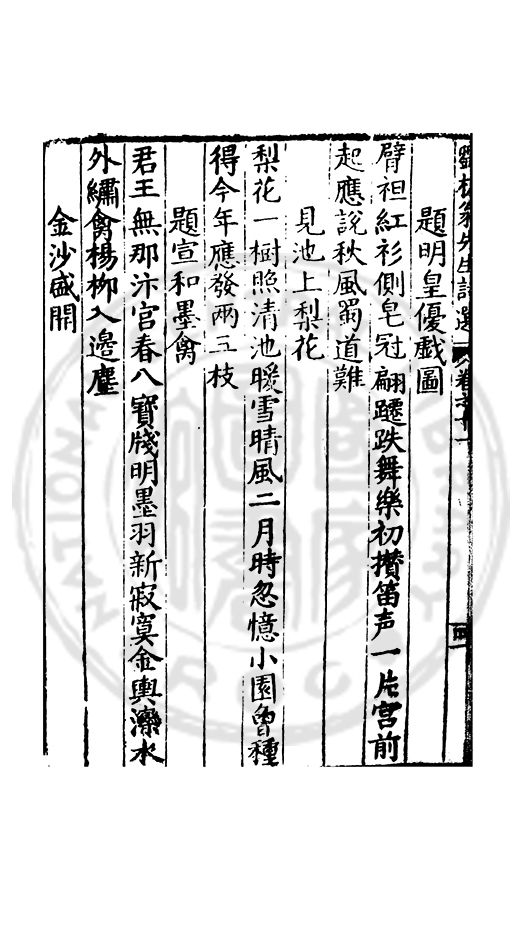 劉槎翁先生詩選 卷之十一 四
題明皇優戲圖
臂袒紅衫側皂冠翩躚跌舞樂初攢笛声一片宮前
起應說秋風蜀道難
見池上梨花
梨花一樹照清池暖雪晴風二月時忽憶小園曾種
得今年應發兩三枝
題宣和墨禽
君王無那汴宮春八寶牋明墨羽新寂寞金輿灤水
外繡禽楊柳入邊塵
金沙盛開